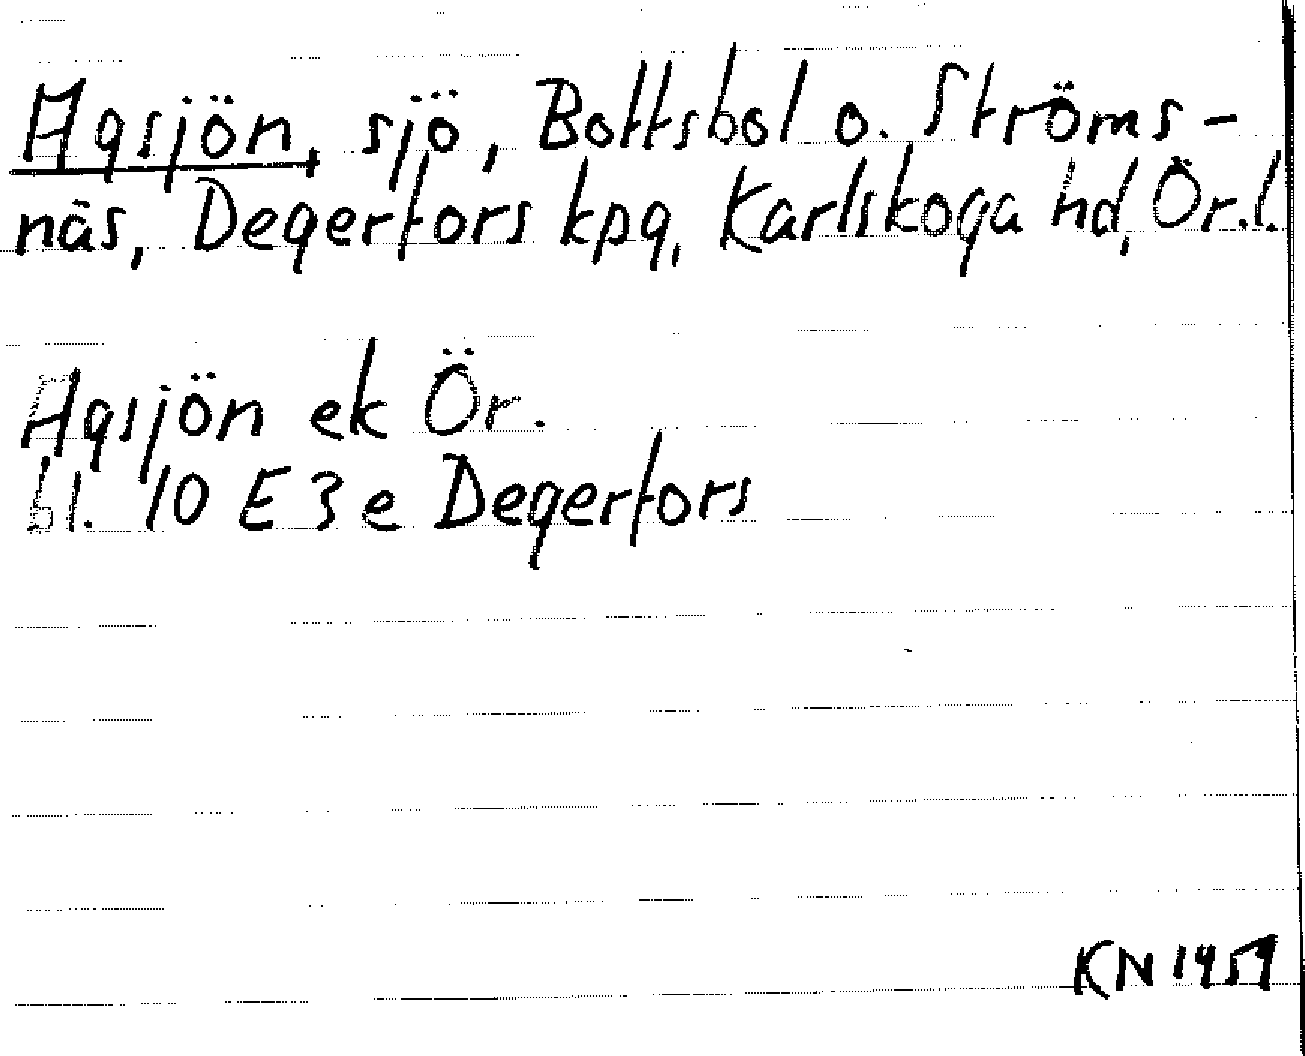 Agsjön, sjö, Bottsbol o. Ströms-
näs, Degerfors kpg, Karlskoga hd, Ör. l.
Agsjön ek Ör.
bl. 10 E 3 e Degerfors
KN 1959